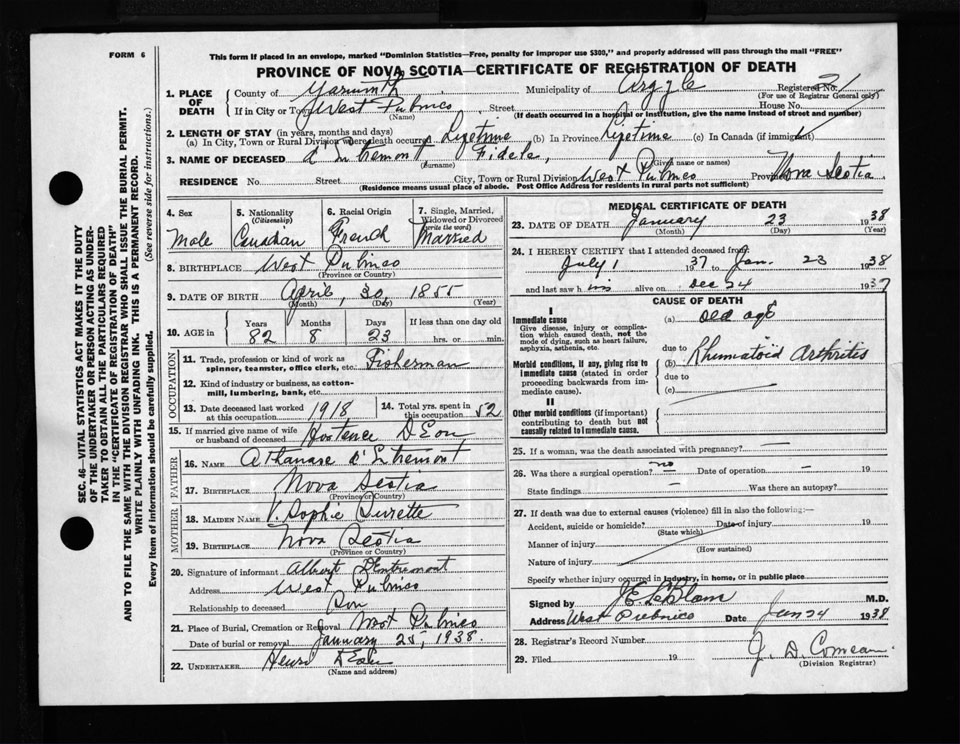 FORM 6
This form if placed in an envelope, marked "Dominion Statistics—Free, penalty for improper use $300," and properly addressed will pass through the mail "FREE"
PROVINCE OF NOVA SCOTIA—CERTIFICATE OF REGISTRATION OF DEATH
1. PLACE OF DEATH
County of Yarmouth Municipality of Argyle Registered No. 21
(For use of Registrar General only)
If in City or Town West Pubnico, Street House No.
(Name) (If death occurred in a hospital or institution, give the name instead of street and number)
2. LENGTH OF STAY (in years, months and days)
(a) In City, Town or Rural Division where death occurred Lifetime (b) In Province Lifetime (c) In Canada (if immigrant)
3. NAME OF DECEASED d'Entremont, Fidele,
(Surname) (Given name or names)
RESIDENCE No. Street City, Town or Rural Division West Pubnico Province Nova Scotia
(Residence means usual place of abode. Post Office Address for residents in rural parts not sufficient)
4. Sex 5. Nationality (Citizenship) 6. Racial Origin 7. Single, Married, Widowed or Divorced (write the word)
Male Canadian French Married
8. BIRTHPLACE West Pubnico
(Province or Country)
9. DATE OF BIRTH April, 30 1855
(Month) (Day) (Year)
10. AGE in Years Months Days If less than one day old
82 8 23 hrs. or min.
OCCUPATION
11. Trade, profession or kind of work as spinner, teamster, office clerk, etc. Fisherman
12. Kind of industry or business, as cotton-mill, lumbering, bank, etc.
13. Date deceased last worked at this occupation 1918 14. Total yrs. spent in this occupation 52
15. If married give name of wife or husband of deceased Hortence D'Eon,
FATHER
16. NAME Athanase d'Entremont
17. BIRTHPLACE Nova Scotia
(Province or Country)
MOTHER
18. MAIDEN NAME Sophie Surette
19. BIRTHPLACE Nova Scotia
(Province or Country)
20. Signature of informant Albert D'Entremont
Address West Pubnico
Relationship to deceased Son
21. Place of Burial, Cremation or Removal West Pubnico
Date of burial or removal January 25, 1938.
22. UNDERTAKER Henri D'Eon
(Name and address)
MEDICAL CERTIFICATE OF DEATH
23. DATE OF DEATH January 23 1938
(Month) (Day) (Year)
24. I HEREBY CERTIFY that I attended deceased from:
July 1 1937 to Jan. 23 1938
and last saw him alive on Dec 24 1937
CAUSE OF DEATH
I
Immediate cause (a) Old age
Give disease, injury or complication which caused death, not the mode of dying, such as heart failure, asphyxia, asthenia, etc.
due to
Morbid conditions, if any, giving rise to immediate cause (stated in order proceeding backwards from immediate cause). (b) Rhumatoid Arthritis
due to
(c)
II
Other morbid conditions (if important) contributing to death but not causally related to immediate cause.
25. If a woman, was the death associated with pregnancy? —
26. Was there a surgical operation? no Date of operation — 19
State findings — Was there an autopsy?
27. If death was due to external causes (violence) fill in also the following:—
Accident, suicide or homicide? Date of injury 19
(State which)
Manner of injury
(How sustained)
Nature of injury
Specify whether injury occurred in industry, in home, or in public place
Signed by J.E. LeBlanc M.D.
Address West Pubnico Date Jan 24 1938
28. Registrar's Record Number
29. Filed 19 J. D. Comeau
(Division Registrar)
SEC. 46—VITAL STATISTICS ACT MAKES IT THE DUTY
OF THE UNDERTAKER OR PERSON ACTING AS UNDER-
TAKER TO OBTAIN ALL THE PARTICULARS REQUIRED
IN THE "CERTIFICATE OF REGISTRATION OF DEATH"
AND TO FILE THE SAME WITH THE DIVISION REGISTRAR WHO SHALL ISSUE THE BURIAL PERMIT.
WRITE PLAINLY WITH UNFADING INK. THIS IS A PERMANENT RECORD.
Every item of information should be carefully supplied. (See reverse side for instructions.)